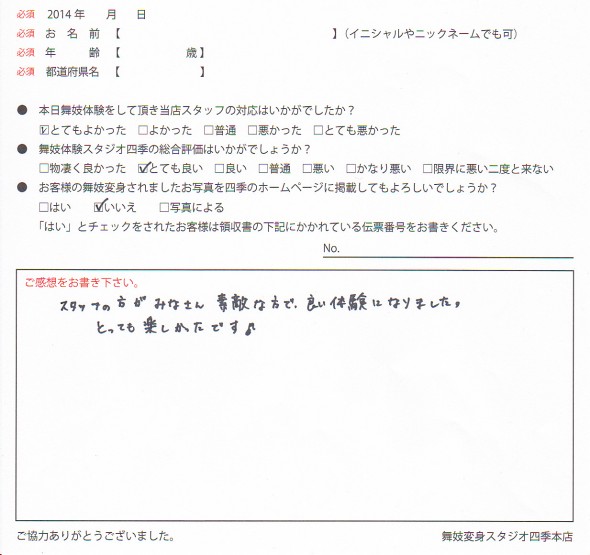 必須 2014年 月 日
必須 お名前【 】(イニシャルやニックネームでも可)
必須 年 齢【 歳】
必須 都道府県名【 】
● 本日舞妓体験をして頂き当店スタッフの対応はいかがでしたか？
☑とてもよかった □よかった □普通 □悪かった □とても悪かった
● 舞妓体験スタジオ四季の総合評価はいかがでしょうか？
□物凄く良かった ☑とても良い □良い □普通 □悪い □かなり悪い □限界に悪い二度と来ない
● お客様の舞妓変身されましたお写真を四季のホームページに掲載してもよろしいでしょうか？
□はい ☑いいえ □写真による
「はい」とチェックをされたお客様は領収書の下記にかかれている伝票番号をお書きください。
No.
ご感想をお書き下さい。
スタッフの方がみなさん素敵な方で、良い体験になりました。
とっても楽しかたです♪
ご協力ありがとうございました。 舞妓変身スタジオ四季本店